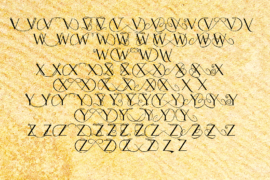 V V V V V V V V V V V V V
W W W W W W W W W W
W W W W
X X X X X X X X X X
X X X X X X X
Y Y Y Y Y Y Y Y Y Y Y Y Y
Y Y Y Y Y Y
Z Z Z Z Z Z Z Z Z Z Z Z
Z Z Z Z Z Z